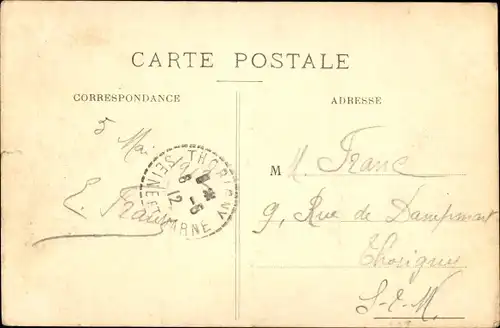 CARTE POSTALE
CORRESPONDANCE
5 Mai
E. Franc
THORIGNY
SEINE ET MARNE
8 - 5
12
ADRESSE
M M. Franc
9, Rue de Dampmart
Thorigny
S-E-M.